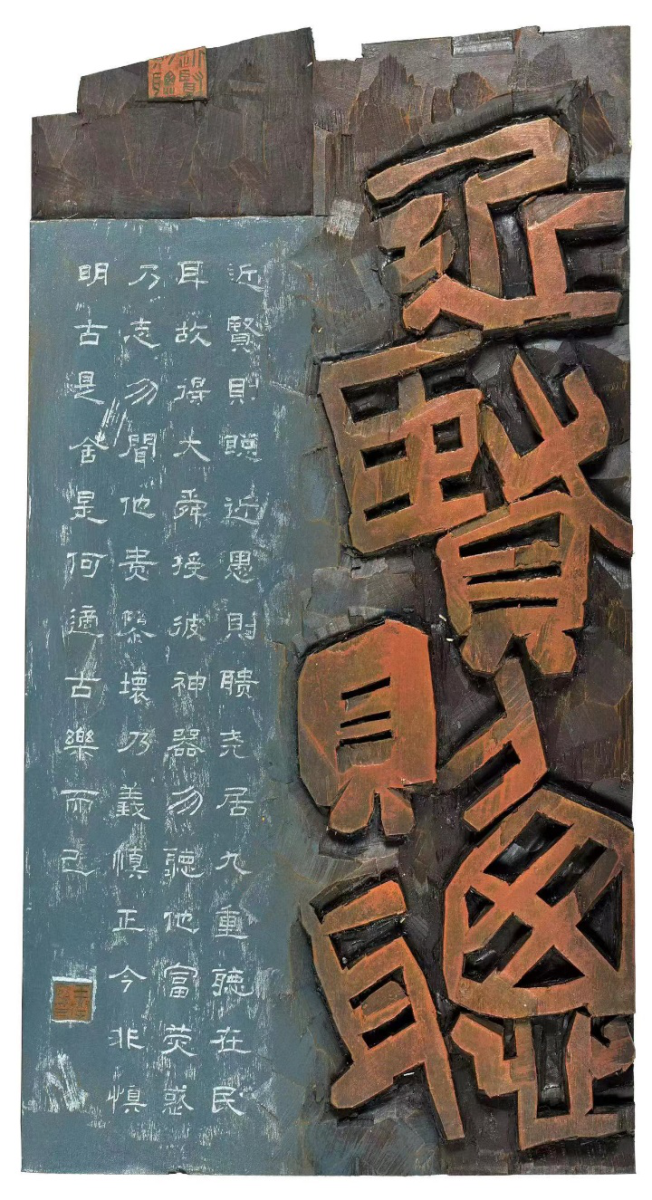 近賢則聰
近賢則聰近愚則聵堯居九重聽在民
耳故得大舜授彼神器勿聽他富熒惑
乃志勿聞他貴壞乃義慎正今非慎
明古是舍是何適古樂而已